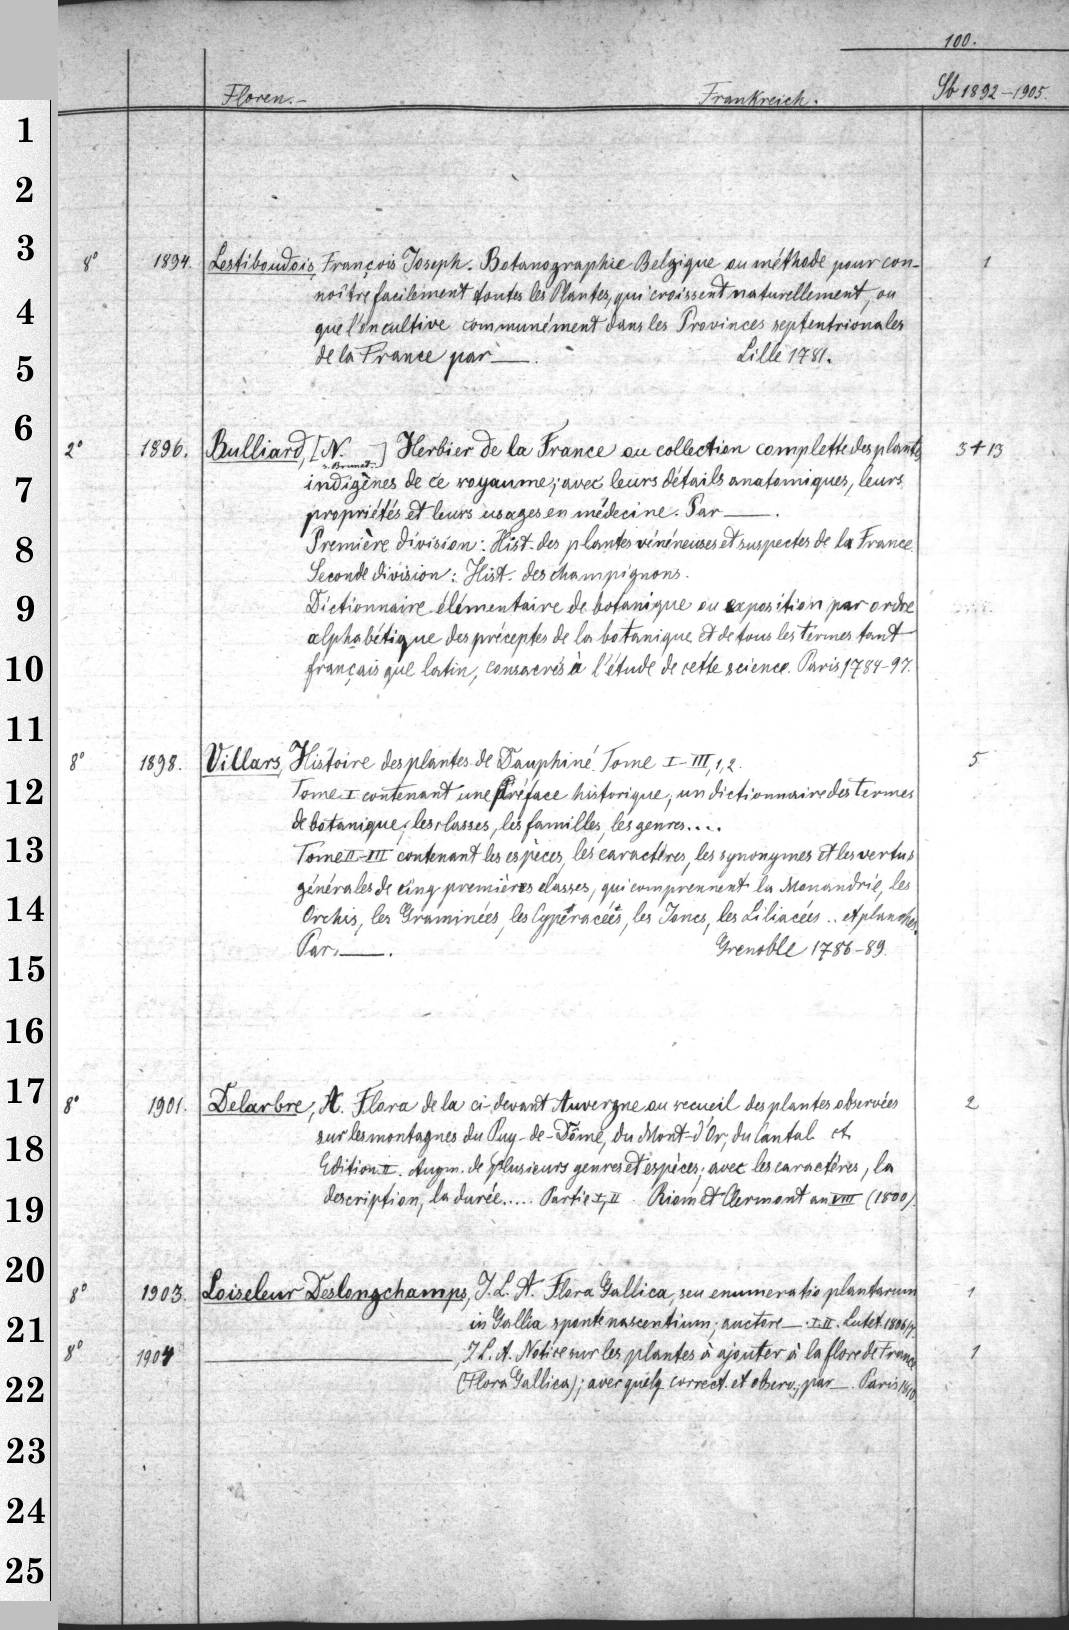 100.
Floren.- Frankreich. Sb 1892-1905.
1
2
3
4
5
6
7
8
9
10
11
12
13
14
15
16
17
18
19
20
21
22
23
24
25
8° 1894. Lestiboudois, François Joseph. Botanographie Belgique ou méthode pour con- 1
noître facilement toutes les Plantes, qui croissent naturellement, ou
que l'on cultive communément dans les Provinces septentrionales
de la France par —. Lille 1781.
2° 1896. Bulliard, [N. ] Herbier de la France ou collection complette des plantes 3+13
indigènes de ce royaume; avec leurs détails anatomiques, leurs
propriétés et leurs usages en médecine. Par —.
Première division: Hist. des plantes vénéneuses et suspectes de la France.
Seconde division: Hist. des champignons.
Dictionnaire élémentaire de botanique ou exposition par ordre
alphabétique des préceptes de la botanique et de tous les termes tant
français que latin, consacrés à l'étude de cette science. Paris 1784-97.
8° 1898. Villars, Histoire des plantes de Dauphiné. Tome I-III,1,2. 5
Tome I contenant une Préface historique, un dictionnaire des termes
de botanique, les classes, les familles, les genres....
Tome II-III contenant les espèces, les caractères, les synonymes et les vertus
générales de cinq premières classes, qui comprennent la Monandrie, les
Orchis, les Graminées, les Cypéracées, les Joncs, les Liliacées .. et planches.
Par —. Grenoble 1786-89.
8° 1901. Delarbre, A. Flora de la ci-devant Auvergne ou recueil des plantes observées 2
sur les montagnes du Puy-de-Dôme, du Mont-d'Or, du Cantal et
Edition II. Augm. de plusieurs genres et espèces, avec les caractères, la
description, la durée..... Partie I, II Riom et Clermont an VIII (1800).
8° 1903. Loiseleur Deslongchamps, J.L.A. Flora Gallica, seu enumeratio plantarum 1
in Gallia sponte nascentium; auctore —. I.II. Lutet. 1806/7.
8° 1904 —, J.L.A. Notice sur les plantes à ajouter à la flore de France 1
(Flora Gallica); avec quelq. correct. et observ.; par —. Paris 1810.